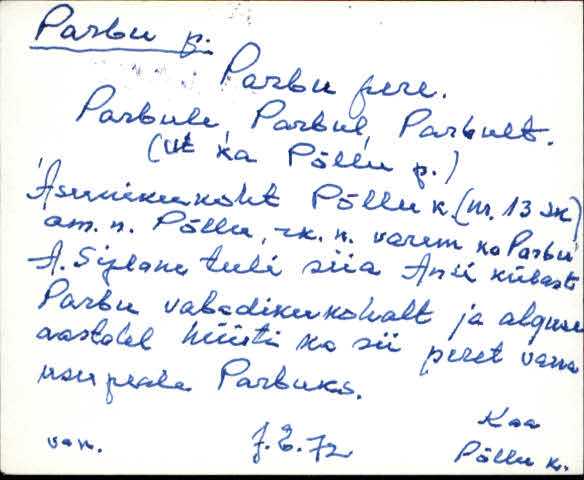 Parbu p.
Parbu pere.
Parbule, Parbul, Parbult.
(vt ka Põllu p.)
Asunikukoht Põllu k. (nr. 13 sk)
am. n. Põllu, rk. n. varem ka Parbu
A. Siplane tuli siia Ansi külast
Parbu vabadikukohalt ja alguse
aastatel hüüti ka sii peret vana
usu peale Parbuks.
Kaa
van. J.E.72 Põllu k.